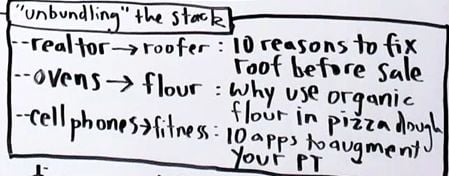 "unbundling" the stack
--realtor→roofer: 10 reasons to fix
roof before sale
--ovens→ flour: why use organic
flour in pizza dough
--cell phones→fitness: 10 apps to augment
your PT